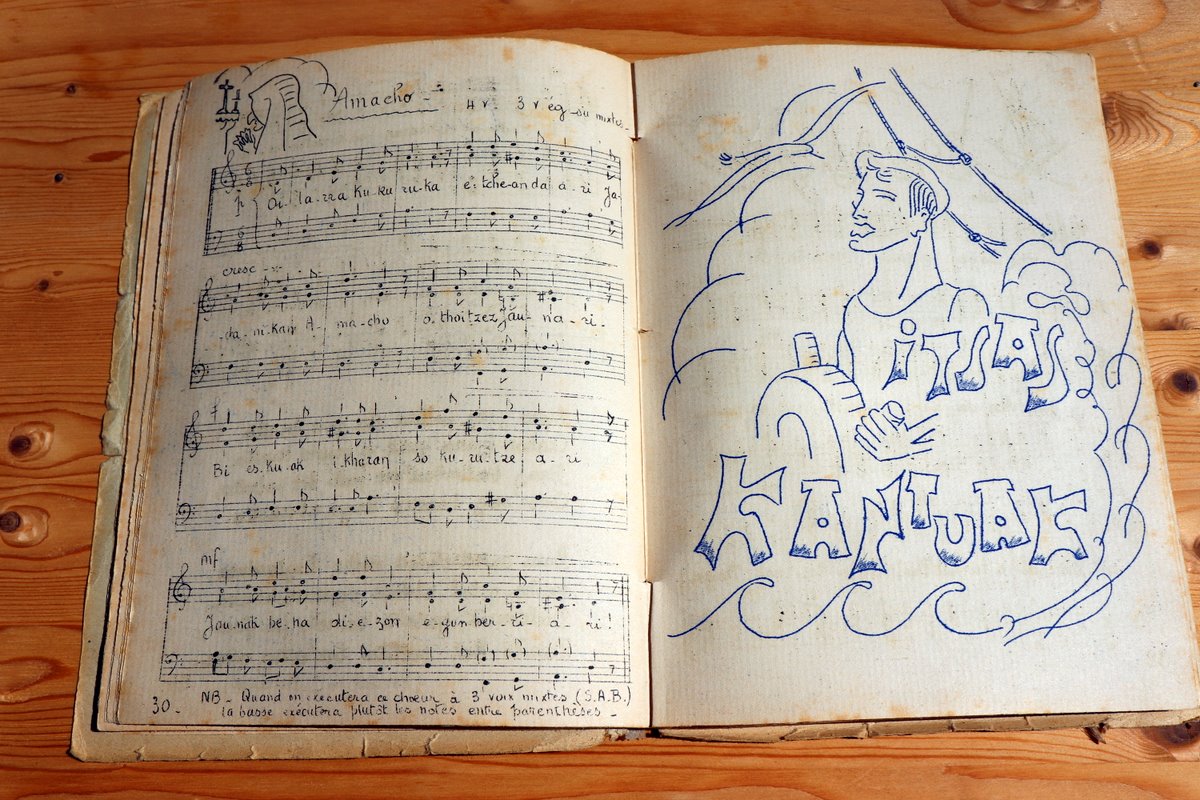 Amacho
4 v 3 v ég-sù mixtes
p Oi la-rra Ku-ku-ru-ka e-tche-an da a-ri Ja-
cresc
da-ni-kan A-ma-cho o-thoitzez Jau-na-ri-
f
Bi es-ku-ak i-kharan so ku-ru-tze a-ri
mf
Jau-nak be-ha di-e-zon e-gun ber-ri-a-ri!
30- NB- Quand on exécutera ce chœur à 3 voix mixtes (S.A.B.)
la basse exécutera plutôt les notes entre parenthèses-
iTSAS
KANTUAK